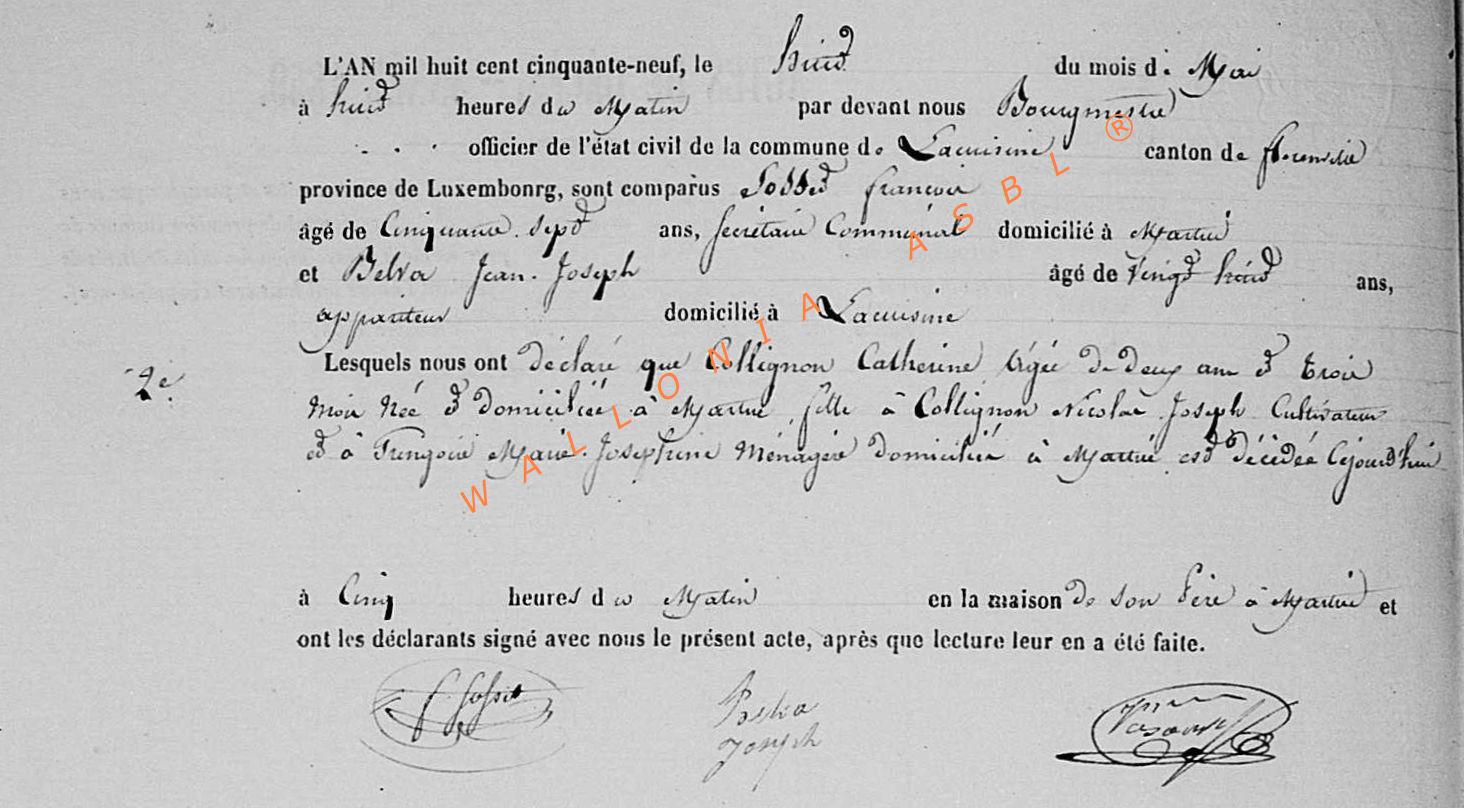 L'AN mil huit cent cinquante-neuf, le huit du mois de Mai
à huit heures du Matin par devant nous Bourgmestre
officier de l'état civil de la commune de Lacuisine canton de florenville
province de Luxembonrg, sont comparus Sosset françois
âgé de Cinquante sept ans, secrétaire Communal domicilié à Martué
et Belva Jean Joseph âgé de vingt huit ans,
appariteur domicilié à Lacuisine
Lesquels nous ont déclaré que Collignon Catherine Agée de deux ans et trois
2e.
mois Née et domiciliée à Martué fille à Collignon Nicolas Joseph Cultivateur
et à Marie Josephine Ménagère domiciliée à Martué est décédée Cejourd'hui
à Cinq heures du Matin en la maison de son Père à Martué et
ont les déclarants signé avec nous le présent acte, après que lecture leur en a été faite.
f Sosset
Belva
Joseph
WALLONIA ASBL ®